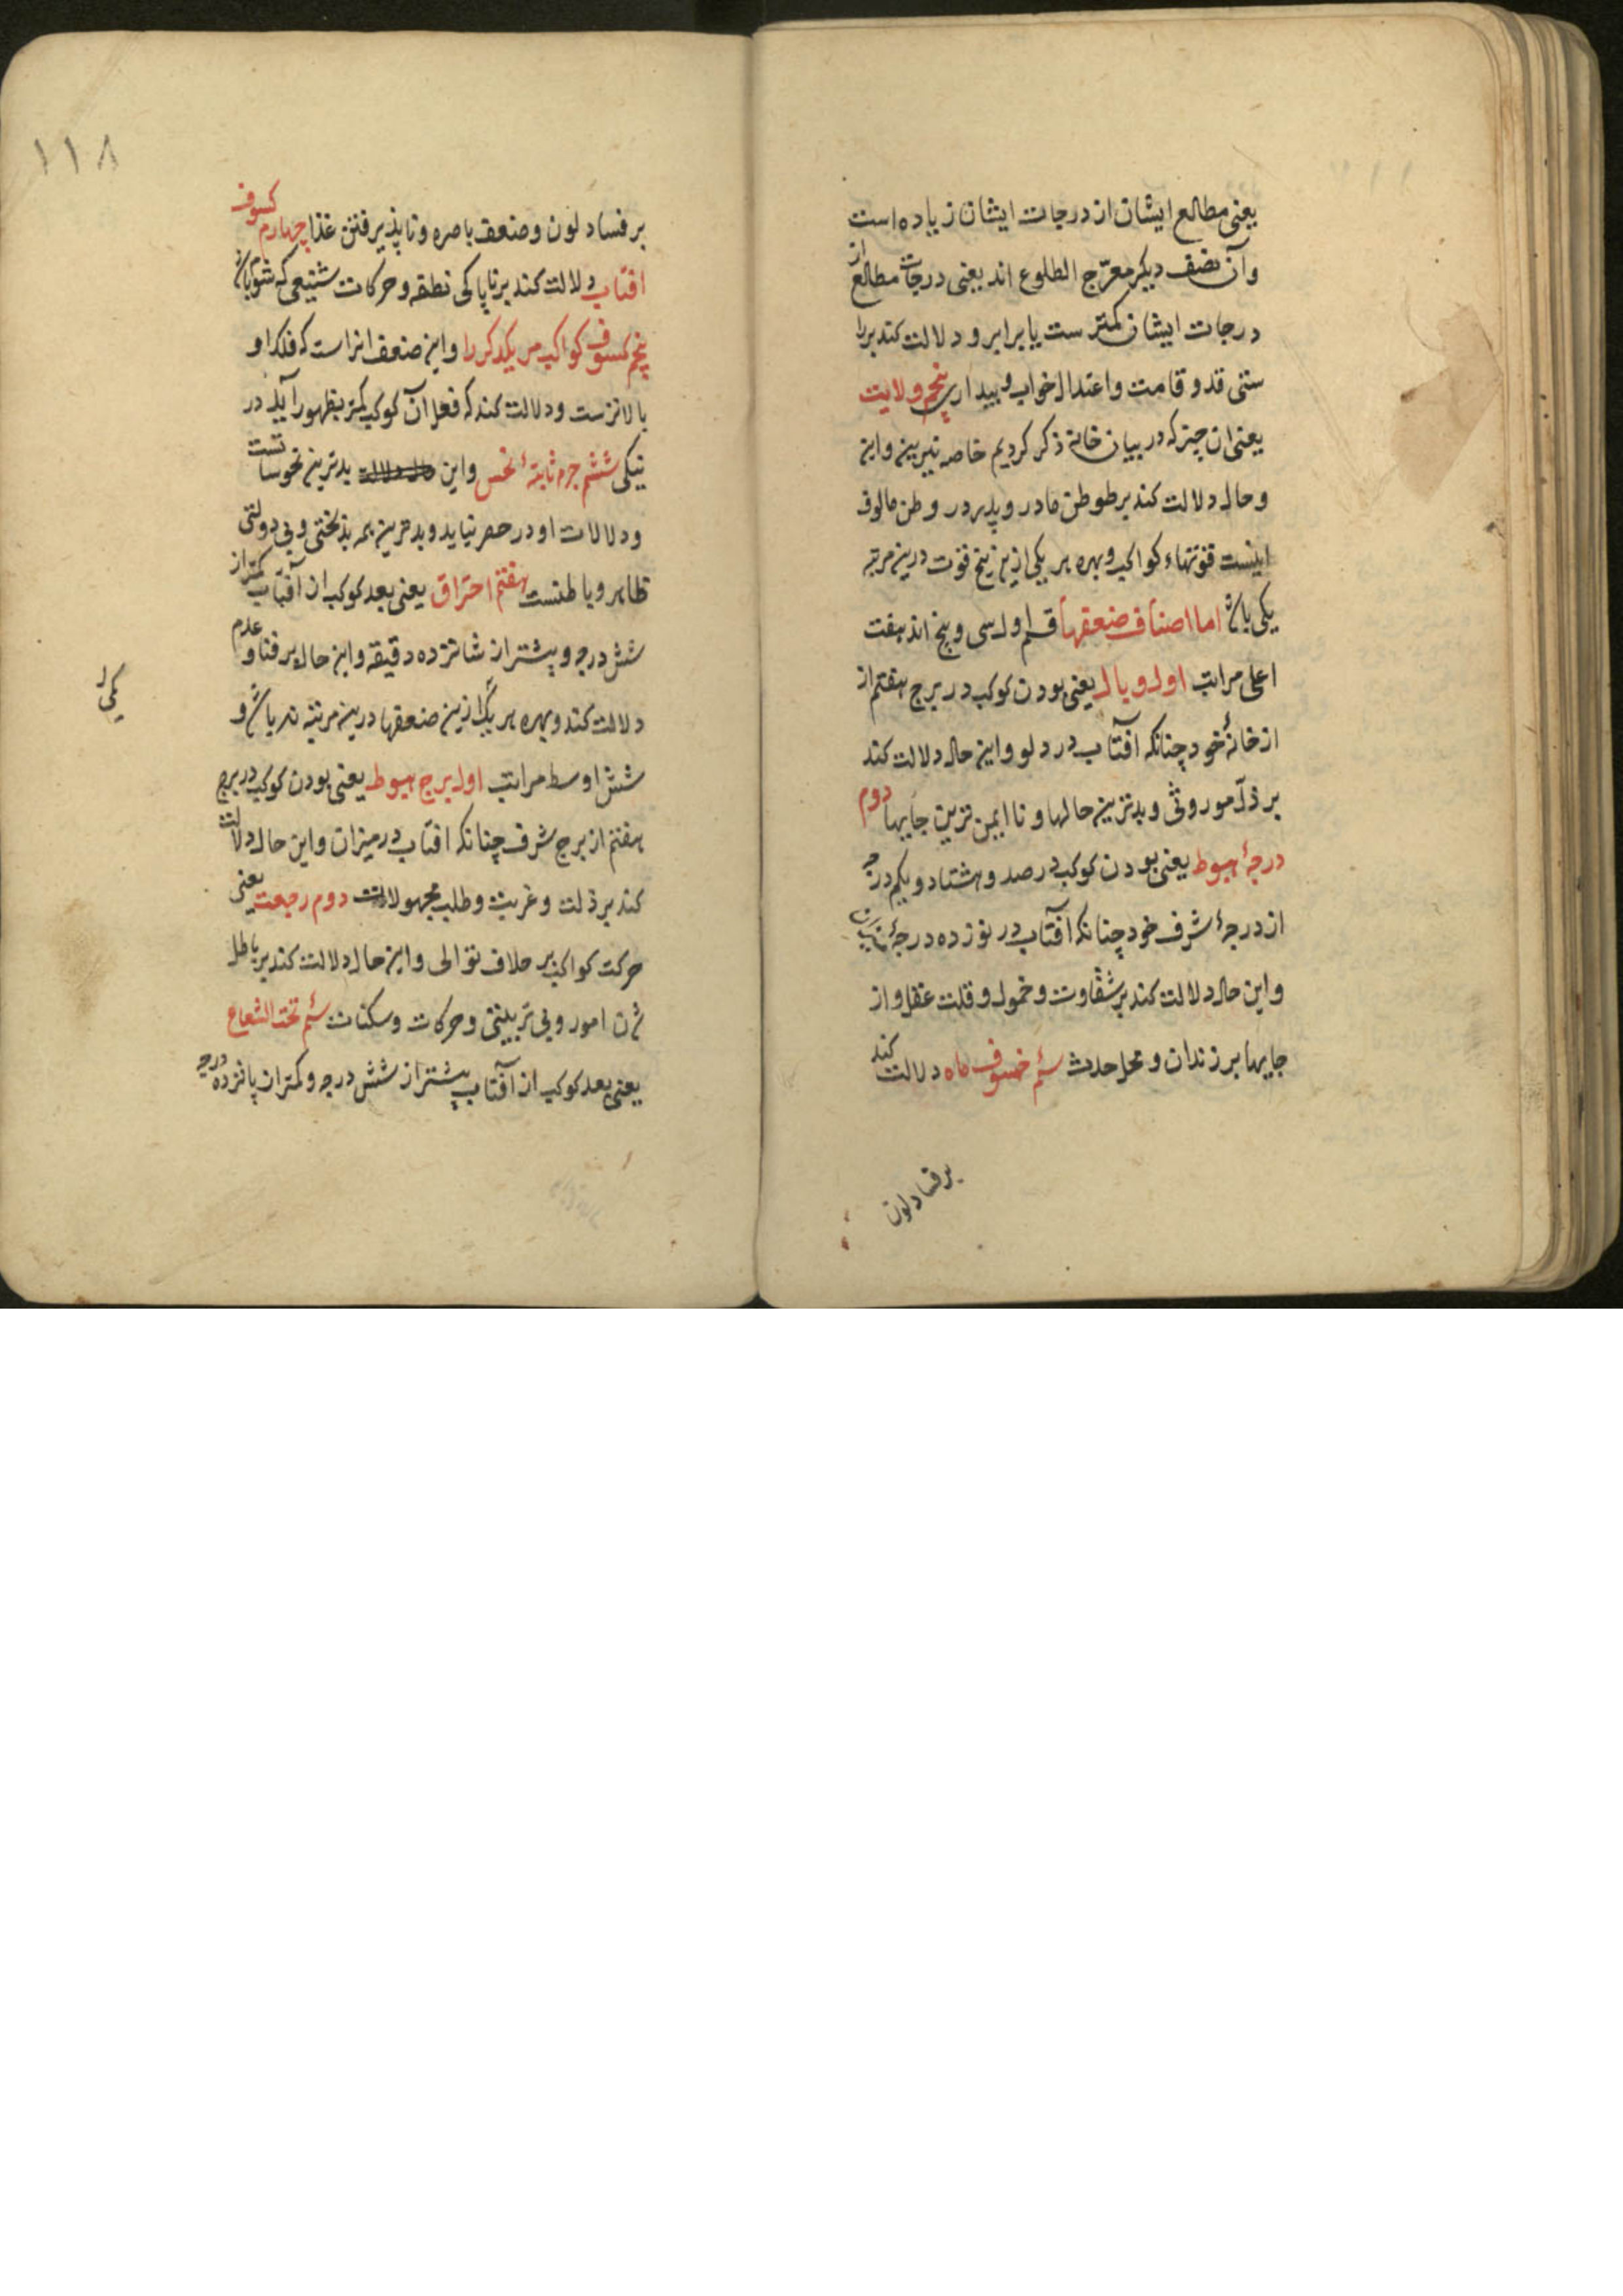 یعنی مطالع ایشان از درجات ایشان زیاده است
وآن نصف دیکر معوّج الطلوع اند یعنی درجات مطالع از
درجات ایشان کمترست یا برابر و دلالت کند برا
ستی قد و قامت و اعتدال خواب و بیداری پنجم ولایت
یعنی ان چیز که در بیان خانه ذکر کردیم خاصه نیرین واین
و حال دلالت کند بر طو طن مادر و پدر در وطن مالوف
اینست قوتهاء کواکب و بهره هر یکی ازین پنج قوت درین مرتبه
یکی باشد اما اصناف ضعفها قسم اول سی و پنج اند هفت
اعلی مراتب اول وبال یعنی بودن کوکب در برج هفتم از
از خانهٔ خود چنانکه آفتاب در دلو واین حال دلالت کند
بر ذلّ موروثی و بدترین حالها و نا ایمن ترین جایها دوم
درجهٔ هبوط یعنی بودن کوکب در صد وهشتاد ویکم درجه
از درجهٔ شرف خود چنانکه آفتاب در نوزده درجهٔ میزان
واین حال دلالت کند بر شقاوت و خمول و قلت عقل و از
جایها بر زندان و محل حدث سئم خسوف ماه دلالت کند
بر فساد لون
۱۱۸
بر فساد لون وضعف باصره ونا پذیرفتن غذا چهارم کسوف
افتاب دلالت کند بر ناپاکی نطفه و حرکات شنیعی که شوم باشد
پنجم کسوف کواکب مر یکدکر را واین ضعف انراست که فلک او
بالاترست ودلالت کند که فعل آن کوکب کمتر بظهور آید در
نیکی ششم جرم ثابتهٔ نحس واین بدترین نحوساتست
ودلالات او در حصر نیاید وبدترین همه بدبختی وبی دولتی
ظاهر وباطنست هفتم احتراق یعنی بعد کوکب از آفتاب کمتر از
شش درجه وبیشتر از شانزده دقیقه واین حال بر فنا و عدم
دلالت کند وبهره هر یک ازین ضعفها درین مرتبه نه باشد و
یکی را
شش اوسط مراتب اول برج هبوط یعنی بودن کوکب در برج
هفتم از برج شرف چنانکه افتاب در میزان واین حال دلالت
کند بر ذلت و غربت وطلب مجهولات دوم رجعت یعنی
حرکت کواکب بر خلاف توالی واین حال دلالت کند بر باطل
شدن امور وبی تربیتی و حرکات وسکنات سئم تحت الشعاع
یعنی بعد کوکب از آفتاب بیشتر از شش درجه وکمتر از پانزده درجه